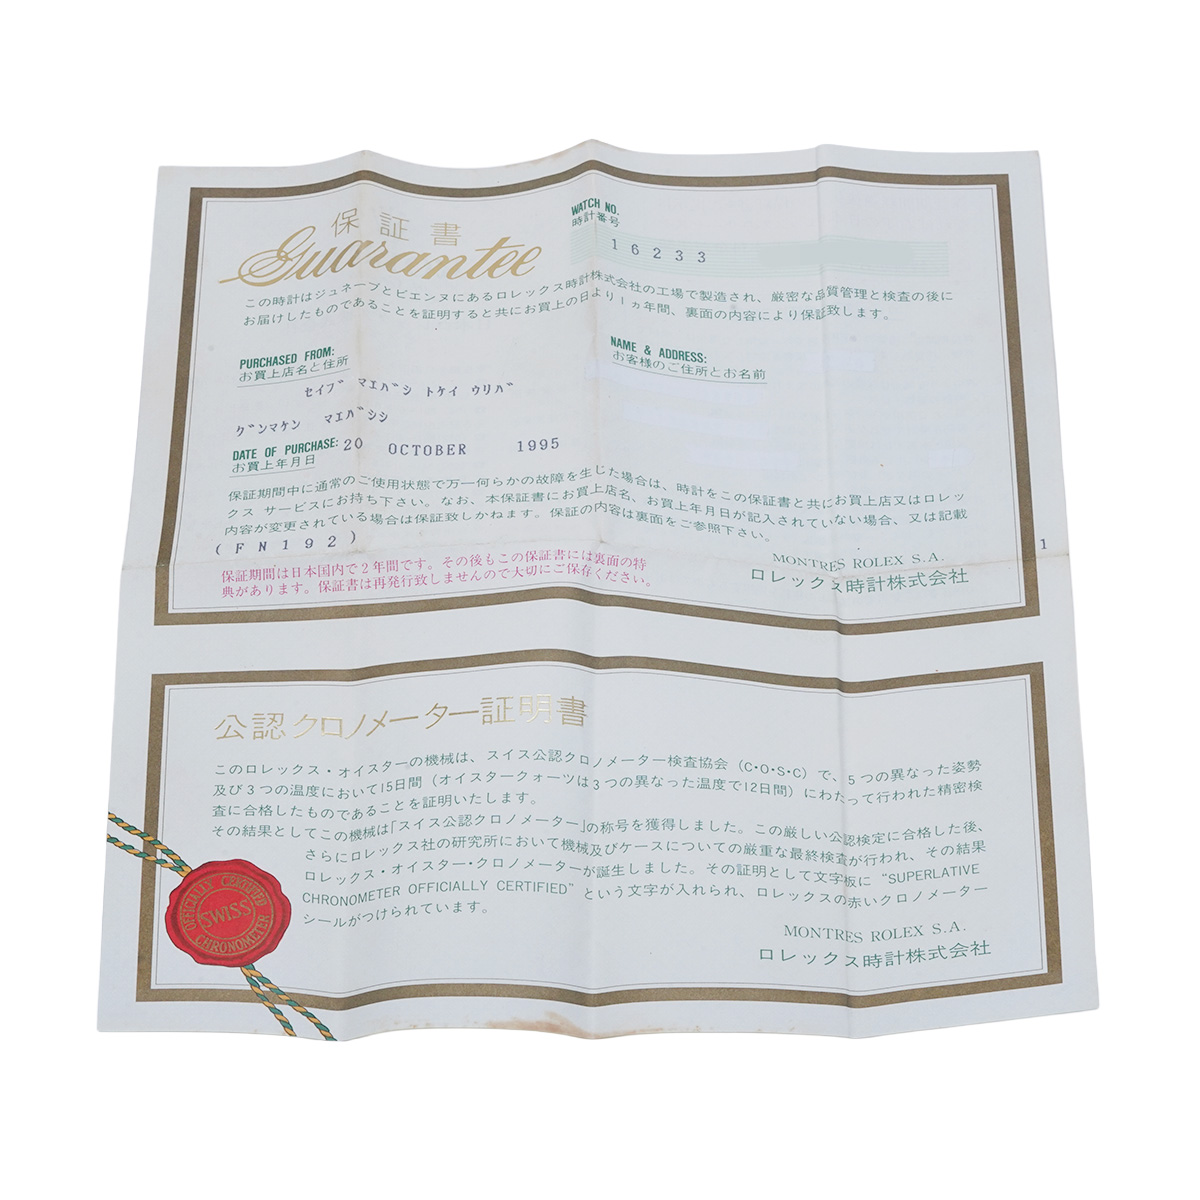 保証書
Guarantee
WATCH NO.
時計番号
16233
この時計はジュネーブとビエンヌにあるロレックス時計株式会社の工場で製造され、厳密な品質管理と検査の後に
お届けしたものであることを証明すると共にお買上の日より1ヵ年間、裏面の内容により保証致します。
PURCHASED FROM:
お買上店名と住所
NAME & ADDRESS:
お客様のご住所とお名前
セイブ マエバシ トケイ ウリバ
グンマケン マエバシシ
DATE OF PURCHASE: 20 OCTOBER 1995
お買上年月日
保証期間中に通常のご使用状態で万一何らかの故障を生じた場合は、時計をこの保証書と共にお買上店又はロレッ
クス サービスにお持ち下さい。なお、本保証書にお買上店名、お買上年月日が記入されていない場合、又は記載
内容が変更されている場合は保証致しかねます。保証の内容は裏面をご参照下さい。
(FN192)
保証期間は日本国内で2年間です。その後もこの保証書には裏面の特
典があります。保証書は再発行致しませんので大切にご保存ください。
MONTRES ROLEX S.A.
ロレックス時計株式会社
1
公認クロノメーター証明書
このロレックス・オイスターの機械は、スイス公認クロノメーター検査協会(C・O・S・C)で、5つの異なった姿勢
及び3つの温度において15日間(オイスタークォーツは3つの異なった温度で12日間)にわたって行われた精密検
査に合格したものであることを証明いたします。
その結果としてこの機械は「スイス公認クロノメーター」の称号を獲得しました。この厳しい公認検定に合格した後、
さらにロレックス社の研究所において機械及びケースについての厳重な最終検査が行われ、その結果
ロレックス・オイスター・クロノメーターが誕生しました。その証明として文字板に "SUPERLATIVE
CHRONOMETER OFFICIALLY CERTIFIED" という文字が入れられ、ロレックスの赤いクロノメーター
シールがつけられています。
MONTRES ROLEX S.A.
ロレックス時計株式会社
OFFICIALLY CERTIFIED
SWISS
CHRONOMETER